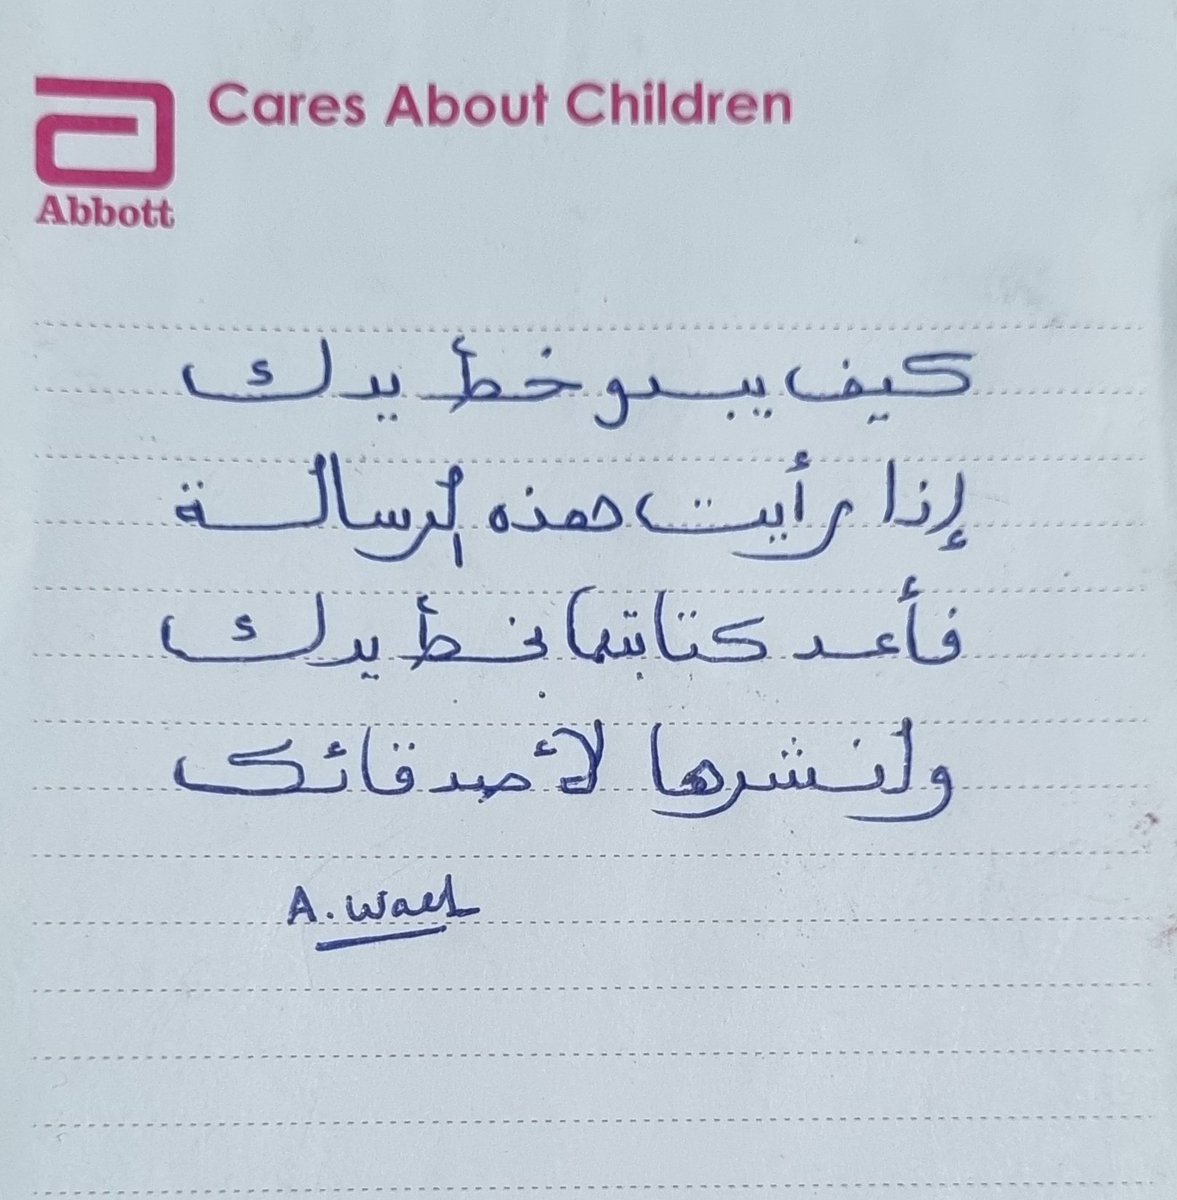 Cares About Children
Abbott
كيف يبدو خط يدك
إذا رأيت هذه الرسالة
فأعد كتابتها بخط يدك
وانشرها لأصدقائك
A. Wael